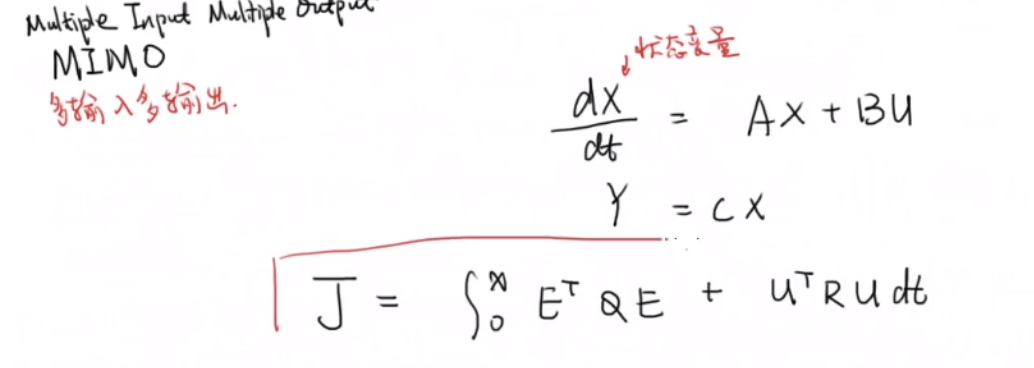 Multiple Input Multiple Output
MIMO
多输入多输出.
状态变量
dx/dt = AX + BU
Y = CX
J = ∫₀^∞ Eᵀ Q E + Uᵀ R U dt